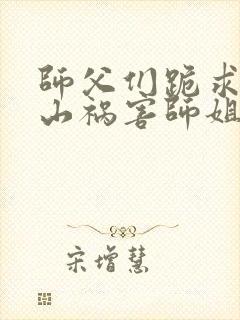 師父们跪求
山祸害師姐
宋增慧